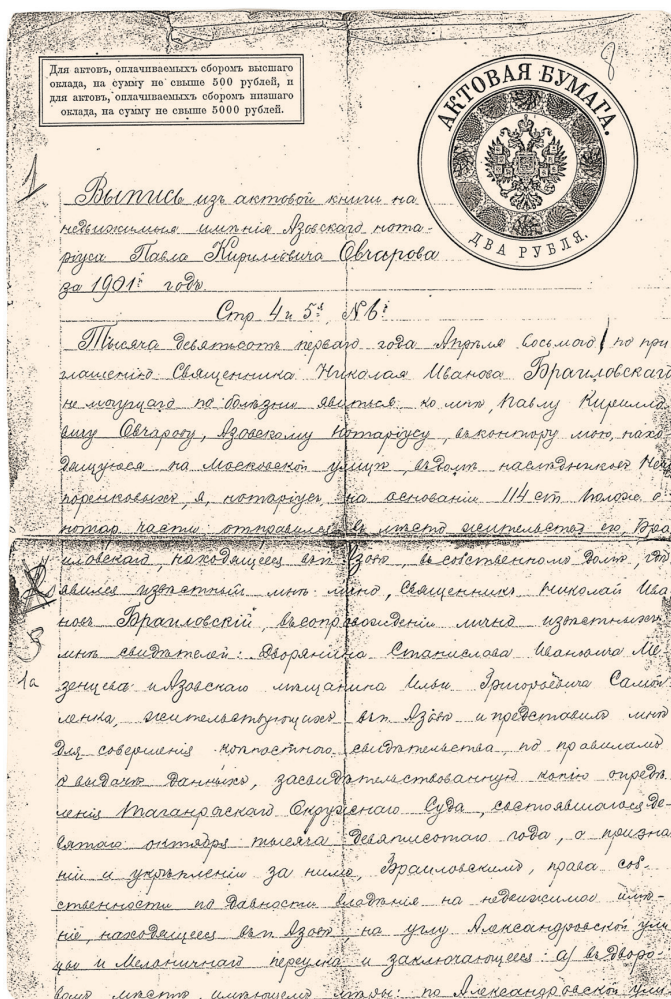 Для актовъ, оплачиваемыхъ сборомъ высшаго
оклада, на сумму не свыше 500 рублей, и
для актовъ, оплачиваемыхъ сборомъ низшаго
оклада, на сумму не свыше 5000 рублей.
АКТОВАЯ БУМАГА.
ДВА РУБЛЯ.
8
1
Выпись изъ актовой книги на
недвижимыя имѣнія Азовскаго нота-
ріуса Павла Кирилловича Овчарова
за 1901й годъ
Стр 4 и 5я, № 6й
Тысяча девятьсотъ перваго года Апрѣля восьмого по при
глашенію Священника Николая Иванова Браиловскаго
не могущаго по болѣзни явиться ко мнѣ, Павлу Кирилло
вичу Овчарову, Азовскому Нотаріусу, въ контору мою, нахо
дящуюся на Московской улицѣ, въ домѣ наслѣдниковъ
поренковыхъ, я, нотаріусъ на основаніи 114 ст. полож. о
нотар. части отправился въ мѣсто жительства его, Бра
иловскаго, находящееся въ п. Азовѣ, въ собственномъ домѣ, гдѣ
явился извѣстный мнѣ лично, Священникъ Николай Ива
новъ Браиловскій, въ сопровожденіи лично извѣстныхъ
мнѣ свидѣтелей: Дворянина Станислава Ивановича Ме
зенцева и Азовскаго мѣщанина Ильи Григорьевича Самой
ленка, жительствующихъ въ п. Азовѣ и представилъ мнѣ
для совершенія крѣпостного свидѣтельства, по правиламъ
о выдачѣ данныхъ, засвидѣтельствованную копію опредѣ
ленія Таганрогскаго Окружнаго Суда, состоявшагося де-
вятаго октября тысяча девятисотаго года, о призна
ніи и укрѣпленіи за нимъ, Браиловскимъ, права соб-
ственности по давности владѣнія на недвижимое имѣ-
ніе, находящееся въ п. Азовѣ, на углу Александровской ули
цы и Мельничнаго переулка и заключающееся: а) въ дворо-
вомъ мѣстѣ, имѣющемъ мѣры: по Александровской ули
3
1а